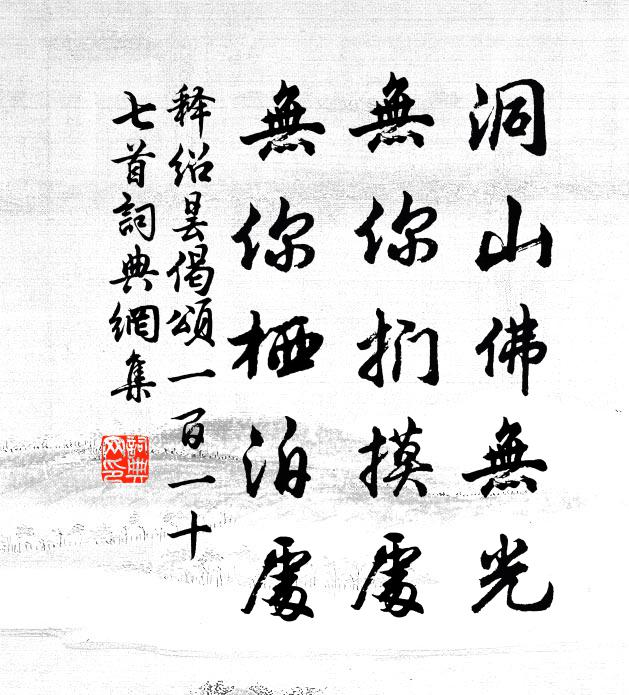 洞山佛無光
無你捫摸處
無你栖泊處
释紹曇偈頌一百一十
七首詞典網集
詞典网印